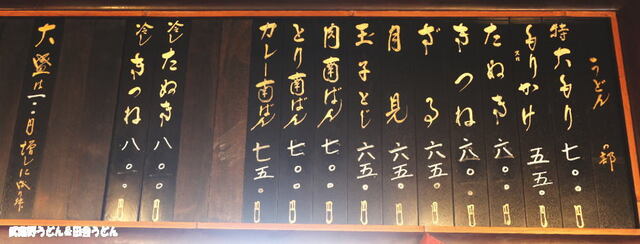 うどんの部
特大もり 七〇〇円
もりかけ 五五〇円
たぬき 六〇〇円
きつね 六〇〇円
ざる 六五〇円
月見 六五〇円
玉子とじ 六五〇円
肉南ばん 七〇〇円
とり南ばん 七〇〇円
カレー南ばん 七五〇円
冷したぬき 八〇〇円
冷しきつね 八〇〇円
大盛は一〇〇円増しに成り升
武蔵野うどん＆田舎うどん